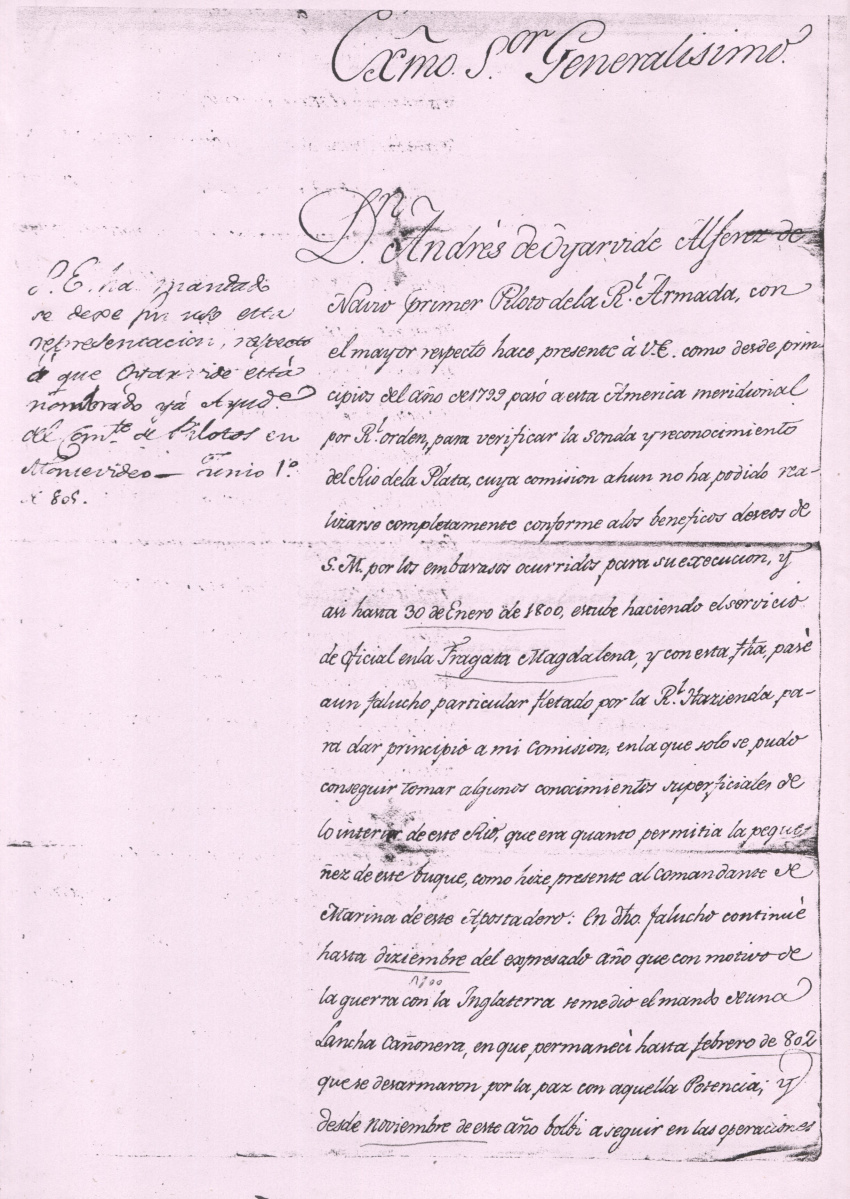 Exmõ. S.or Generalisimo.
D.n Andrès de Oyarvide Alferez de
Navio primer Piloto dela R.l Armada, con
el mayor respecto hace presente à V.E. como desde prin-
cipios del año de 1799 pasó a esta America meridional
por R.l orden, para verificar la sonda y reconocimiento
del Rio dela Plata, cuya comision ahun no ha podido rea-
lizarse completamente conforme alos beneficos deseos de
S.M. por los embarasos ocurridos para su execucion, y
asi hasta 30 de Enero de 1800, estube haciendo el servicio
de oficial enla Fragata Magdalena, y con esta fha, pasè
aun falucho particular fletado por la R.l Hazienda pa-
ra dar principio a mi Comision, enla que solo se pudo
conseguir tomar algunos conocimientos superficiales de
lo interior de este Rio, que era quanto permitia la peque-
ñez de este buque, como hize presente al Comandante de
Marina de este Apostadero: En dho. falucho continuè
hasta diziembre del expresado año que con motivo de
la guerra con la Inglaterra semedio el mando de una
Lancha Cañonera, en que permanecì hasta febrero de 802
que se desarmaron por la paz con aquella Potencia; y
desde noviembre de este año bolbi a seguir en las operaciones
S.E. ha mandado
se dexe sin uso esta
representacion, respecto
á que Oyarvide està
nombrado yá Ayud.e
del Com.te de Pilotos en
Montevideo — Junio 1.º
de 805.